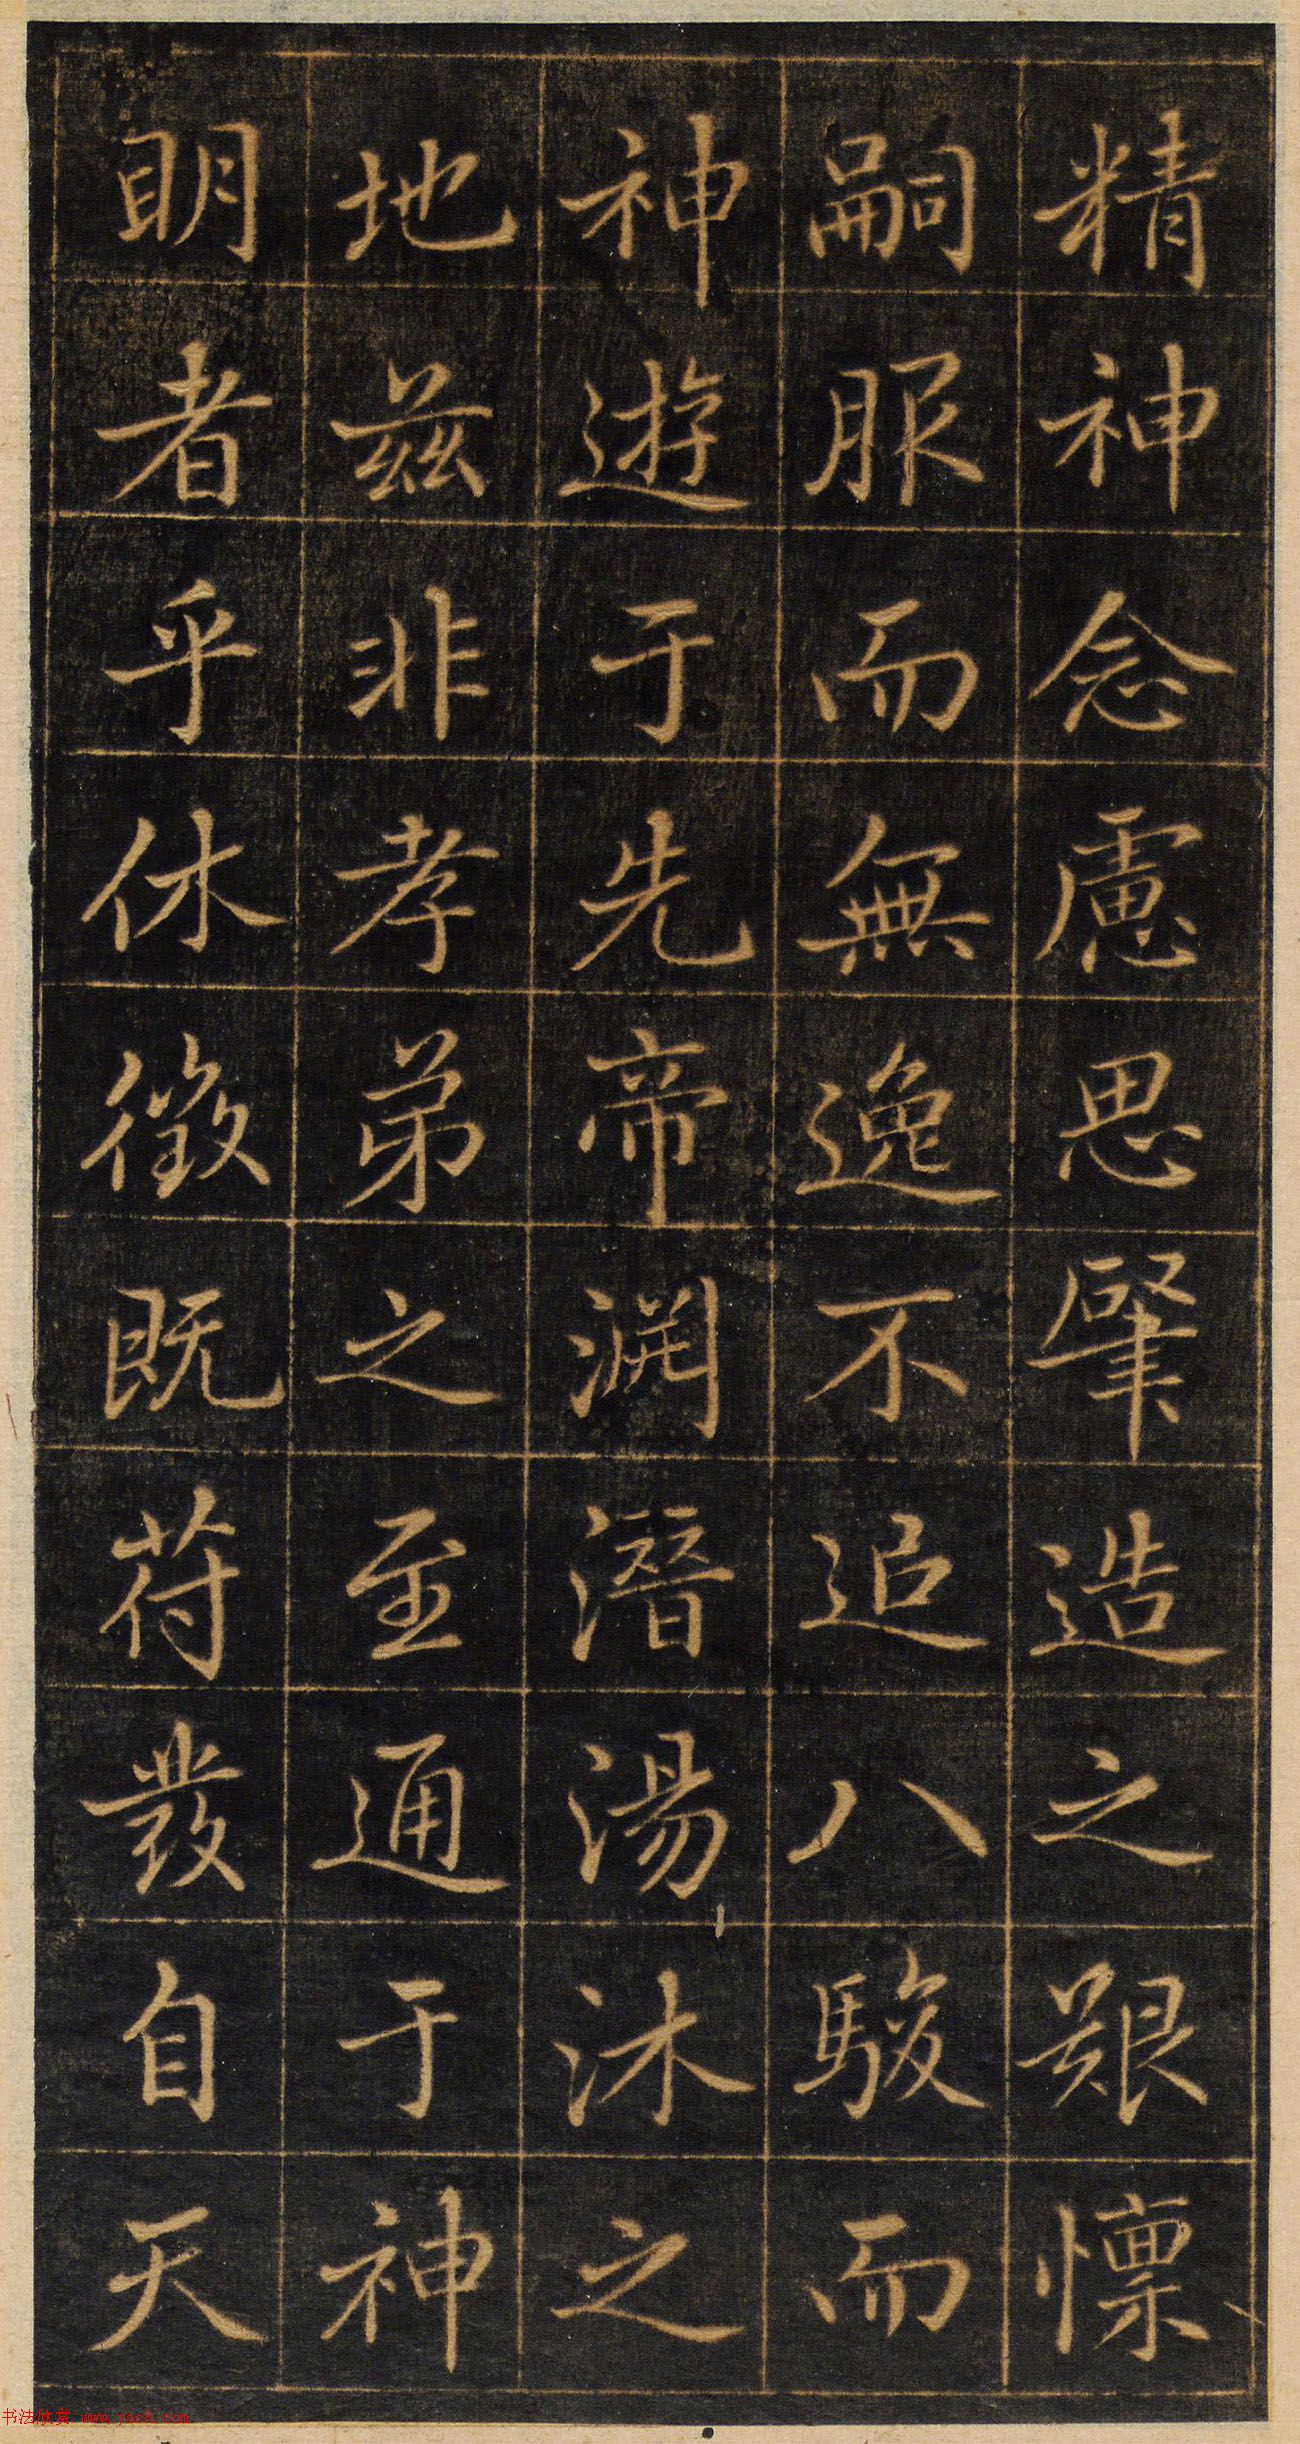 精神念慮思肇造之艱懍
嗣服而無逸不追八駿而
神遊于先帝淵潛湯沐之
地茲非孝弟之至通于神
明者乎休徵既苻發自天
书法欣赏 www.yac8.com